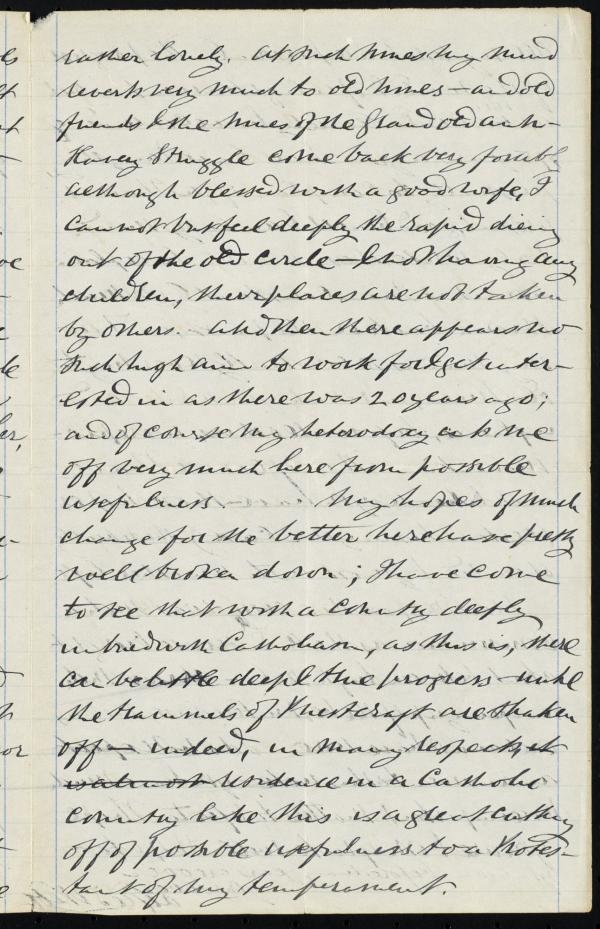 rather lonely. At such times my mind
reverts very much to old times — and old
friends & the times of the grand old anti-
slavery struggle come back very forcibly
although blessed with a good wife, I
cannot but feel deeply the rapid dieing
out of the old circle — & not having any
children, their places are not taken
by others. And then there appears no
such high aim to work for & get inter-
ested in as there was 20 years ago;
and of course my heterodoxy cuts me
off very much here from possible
usefulness — My hopes of much
change for the better here have pretty
well broken down; I have come
to see that with a country deeply
imbued with Catholicism, as this is, there
can be little deep & true progress until
the trammels of Priestcraft are shaken
off — indeed, in many respects, it
is almost residence in a Catholic
country like this is a great cutting
off of possible usefulness to a Protes-
tant of my temperament.